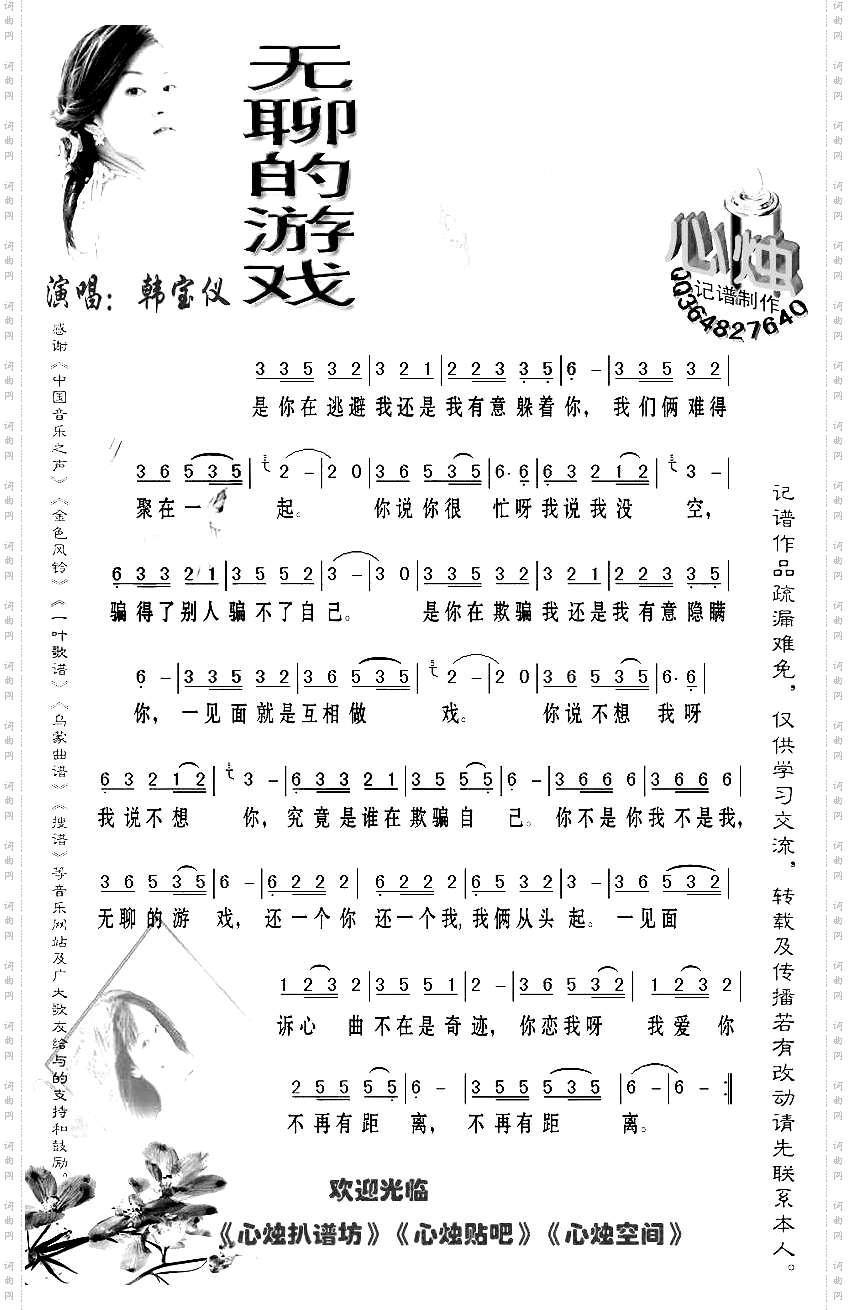 无聊的游戏
演唱：韩宝仪
心烛
记谱制作
QQ364827640
感谢《中国音乐之声》《金色风铃》《一叶歌谱》《乌蒙曲谱》《搜谱》等音乐网站及广大歌友给与的支持和鼓励。
3 3 5 3 2 | 3 2 1 | 2 2 3 3 5 | 6 - | 3 3 5 3 2 |
是你在逃避我还是我有意躲着你， 我们俩难得
3 6 5 3 5 | 2 - | 2 0 | 3 6 5 3 5 | 6· 6 | 6 3 2 1 2 | 3 - |
聚在一 起。 你说你很 忙呀我说我没 空，
6 3 3 2 1 | 3 5 5 2 | 3 - | 3 0 | 3 3 5 3 2 | 3 2 1 | 2 2 3 3 5 |
骗得了别人骗不了自己。 是你在欺骗我还是我有意隐瞒
6 - | 3 3 5 3 2 | 3 6 5 3 5 | 2 - | 2 0 | 3 6 5 3 5 | 6· 6 |
你， 一见面就是互相做 戏。 你说不想 我呀
6 3 2 1 2 | 3 - | 6 3 3 2 1 | 3 5 5 5 | 6 - | 3 6 6 6 | 3 6 6 6 |
我说不想 你，究竟是谁在欺骗自 己。你不是你我不是我，
3 6 5 3 5 | 6 - | 6 2 2 2 | 6 2 2 2 | 6 5 1 2 | 3 - | 3 6 5 3 2 |
无聊的游 戏，还一个你 还一个我,我俩从头起。一见面
1 2 3 | 3 5 5 1 | 2 - | 3 6 5 3 2 | 1 2 3 |
诉心 曲不在是奇迹，你恋我呀 我爱你
2 5 5 5 5 | 6 - | 3 5 5 5 3 5 | 6 - | 6 - :|
不再有距 离， 不再有距 离。
记谱作品疏漏难免，仅供学习交流，转载及传播若有改动请先联系本人。
欢迎光临
《心烛扒谱坊》《心烛贴吧》《心烛空间》
词曲网